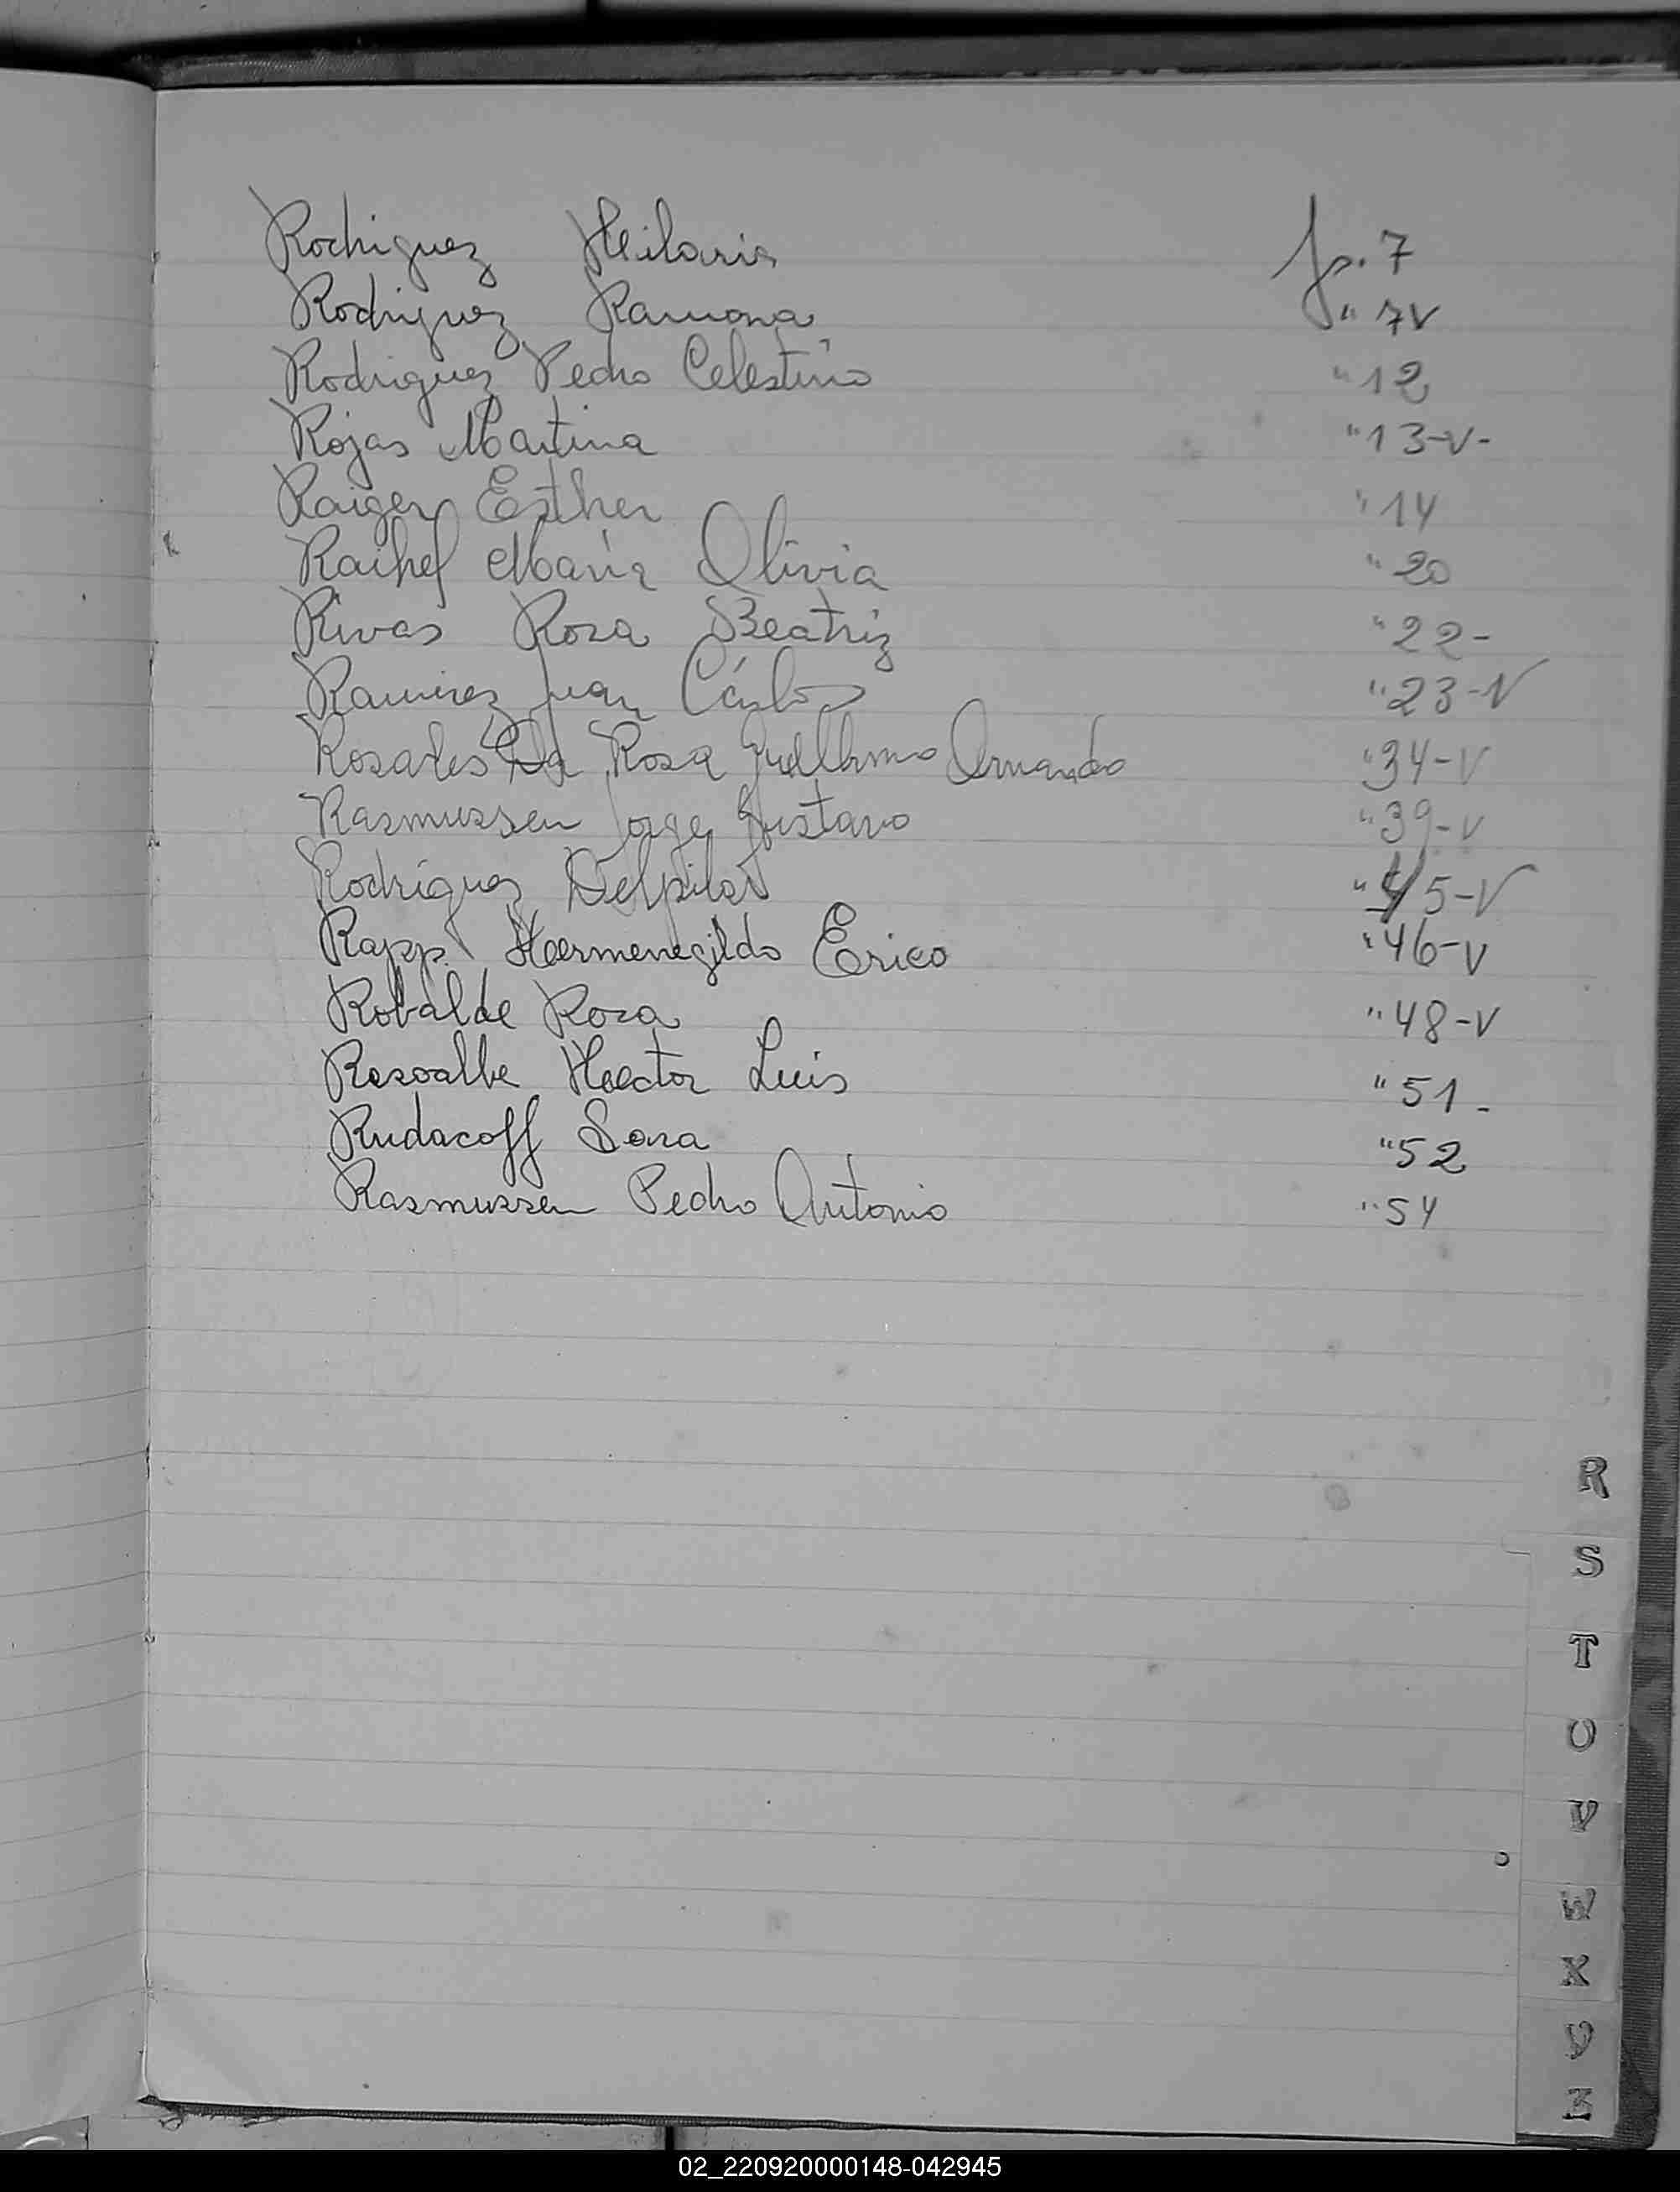 Rodriguez Hilaria fs. 7
Rodriguez Ramona " 7V
Rodriguez Pedro Celestino " 12
Rojas Martina " 13-V-
Raiger Esther " 14
Raihel María Olivia " 20
Rivas Rosa Beatriz " 22-
Ramirez Juan Carlos " 23-V
Rosales Da Rosa Guillermo Armando " 34-V
Rasmussen Jorge Gustavo " 39-V
Rodríguez Delpilar " 45-V
Rapp. Hermenegildo Erico " 46-V
Robalde Rosa " 48-V
Hector Luis " 51-
Rudacoff Sara " 52
Rasmussen Pedro Antonio " 54
R
S
T
U
V
W
X
Y
Z
02_220920000148-042945